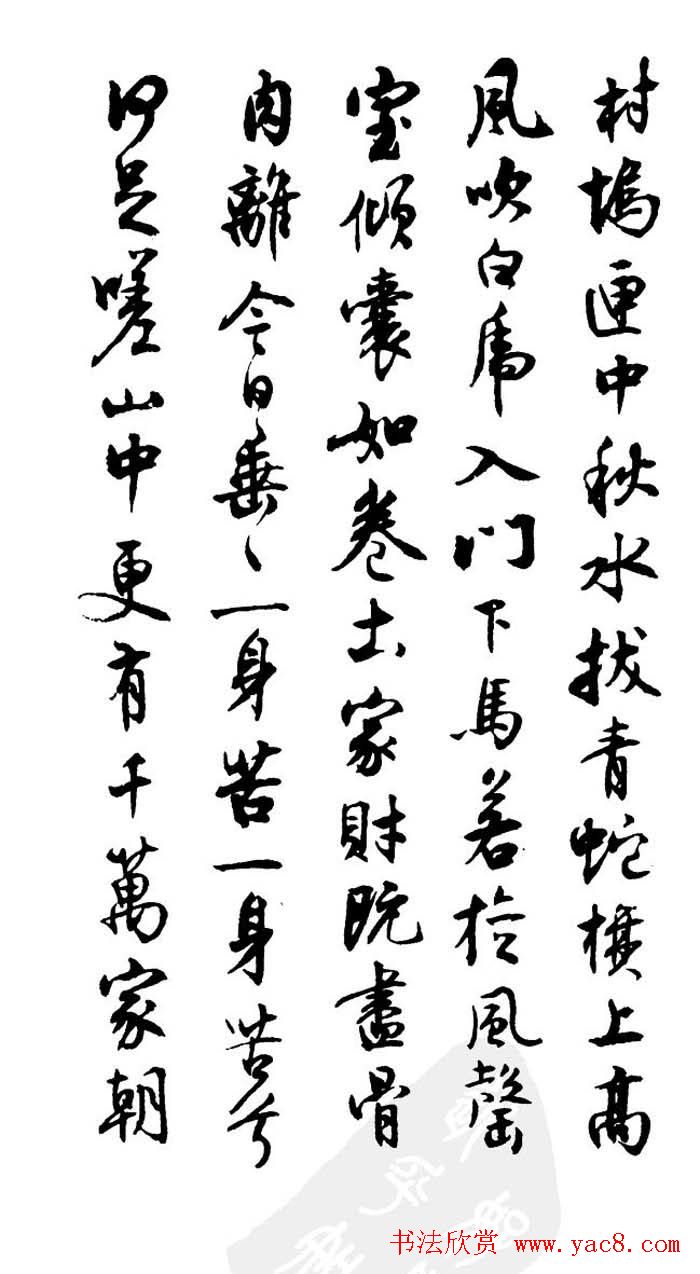 村塢匣中秋水拔青蛇旗上高
風吹白虎入門下馬若旋風罄
室傾囊如卷土家財既盡骨
肉離今日垂々一身苦一身苦兮
何足嗟山中更有千萬家朝
书法欣赏 www.yac8.com